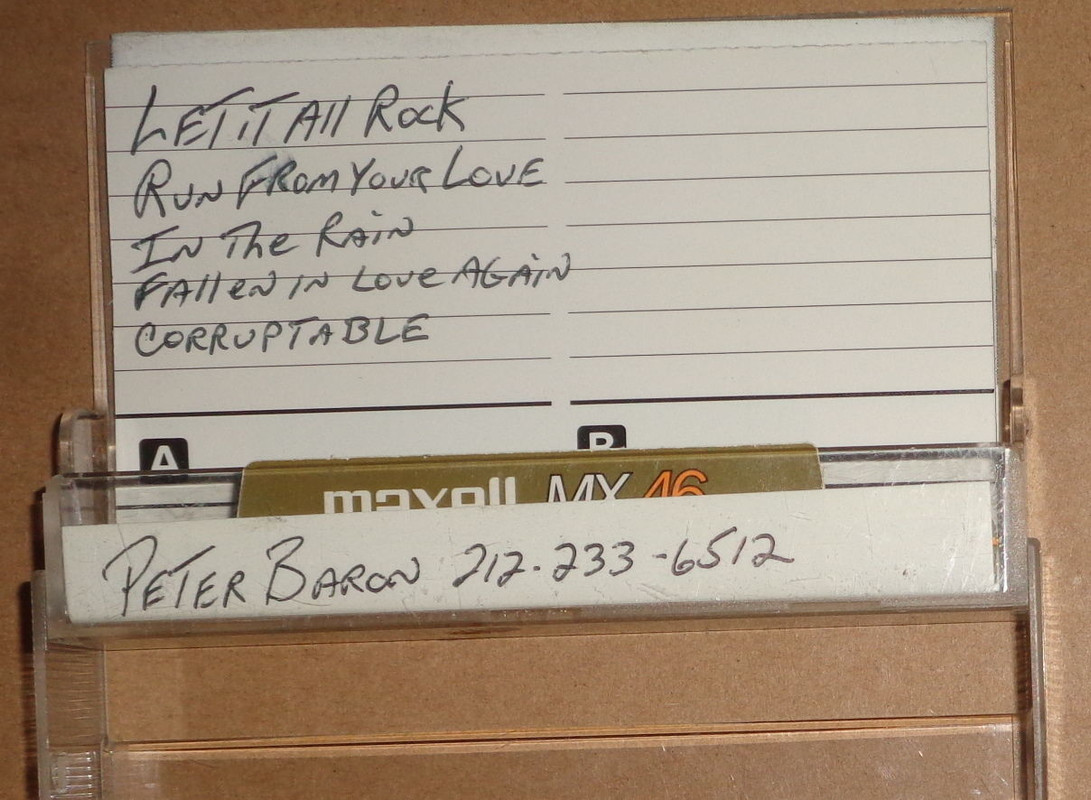 LET IT All Rock
RUN FROM YOUR LOVE
IN The RAiN
FAllen IN Love AGAiN
CORRUPTABLE
A B
maxell MX 46
PETER BARON 212-233-6512